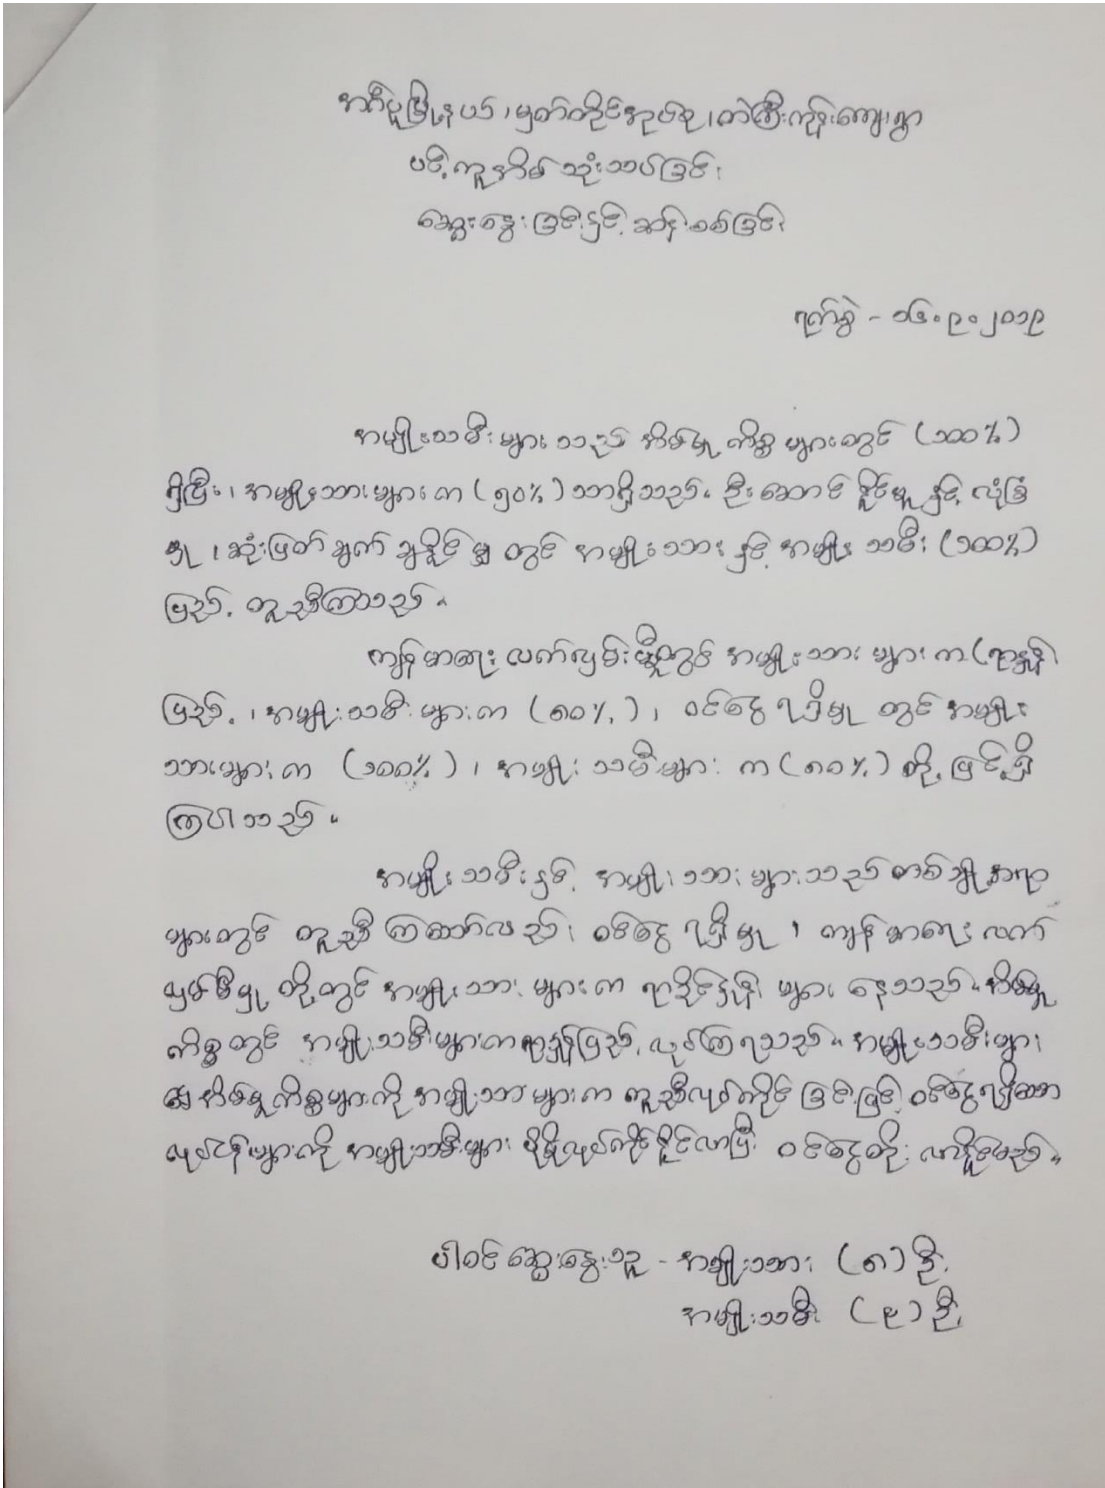 အင်္ဂပူမြို့နယ်၊ မှတ်တိုင်အုပ်စု၊ တဲကြီးကုန်းကျေးရွာ
ပင့်ကူအိမ် သုံးသပ်ခြင်း
ဆွေးနွေးခြင်းနှင့် ဆန်းစစ်ခြင်း
ရက်စွဲ - ၁၆.၉.၂၀၁၉
အမျိုးသမီးများသည် အိမ်မှုကိစ္စများတွင် (၁၀၀%)
ရှိပြီး၊ အမျိုးသားများက (၅၀%) သာရှိသည်။ ဦးဆောင်နိုင်မှုနှင့် လုံခြုံ
မှု၊ ဆုံးဖြတ်ချက်ချနိုင်မှုတွင် အမျိုးသားနှင့် အမျိုးသမီး (၁၀၀%)
ဖြင့် တူညီကြသည်။
ကျန်းမာရေးလက်လှမ်းမှီမှုတွင် အမျိုးသားများက (ရာနှုန်း)
ပြည့်၊ အမျိုးသမီးများက (၈၀%)၊ ဝင်ငွေရရှိမှုတွင် အမျိုး
သားများက (၁၀၀%)၊ အမျိုးသမီးများက (၈၀%) တို့ဖြင့် ရှိ
ကြပါသည်။
အမျိုးသမီးနှင့် အမျိုးသားများသည် တစ်ချို့အရာ
များတွင် တူညီကြသော်လည်း ဝင်ငွေရရှိမှု၊ ကျန်းမာရေးလက်
လှမ်းမီမှုတို့တွင် အမျိုးသားများက ရာခိုင်နှုန်းများနေသည်။ အိမ်မှု
ကိစ္စတွင် အမျိုးသမီးများကရာနှုန်းပြည့်လုပ်ကြရသည်။ အမျိုးသမီးများ
၏ အိမ်မှုကိစ္စများကို အမျိုးသားများက ကူညီလုပ်ကိုင်ခြင်းဖြင့် ဝင်ငွေရရှိသော
လုပ်ငန်းများကို အမျိုးသမီးများ ပိုမိုလုပ်ကိုင်နိုင်လာပြီး ဝင်ငွေတိုးလာနိုင်မည်။
ပါဝင်ဆွေးနွေးသူ - အမျိုးသား (၈) ဦး
အမျိုးသမီး (၉) ဦး